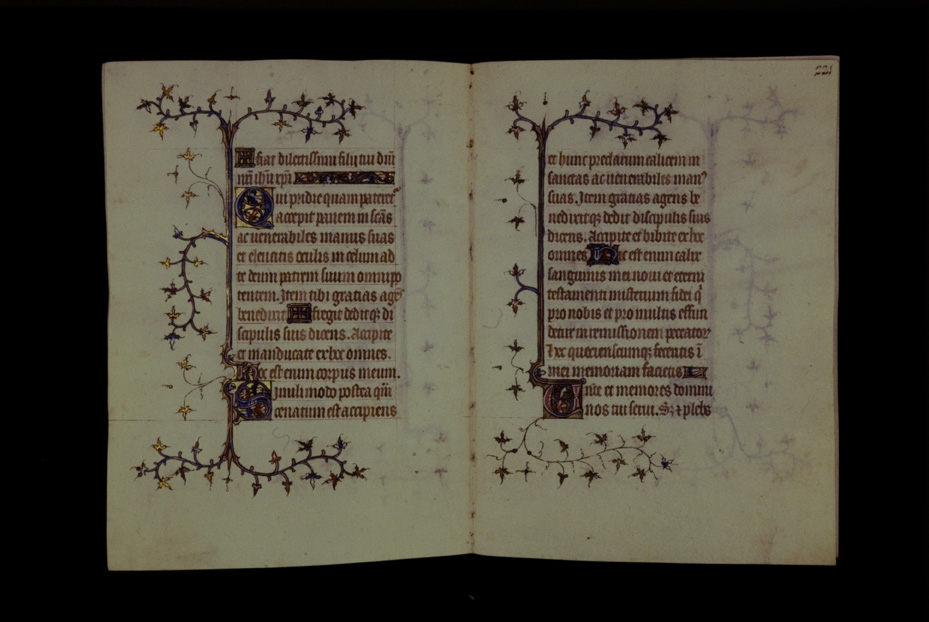 fiat dilectissimi filij tui dñi
nr̃i ihũ xp̃i
Qui pridie quam pateretʳ
accepit panem in sc̃as
ac uenerabiles manus suas
et eleuatis oculis in celum ad
te deum patrem suum omnipo
tentem. Item tibi gratias agẽs
benedixit fregit dedit qꝫ di
scipulis suis dicens. Accipite
et manducate ex hoc omnes.
Hoc est enim corpus meum.
Simili modo postea qm̃
cenatum est accipiens
221
et hunc preclarum calicem in
sanctas ac uenerabiles man⁹
suas. Item gratias agens be
nedixit qꝫ dedit discipulis suis
dicens. Accipite et bibite ex hoc
omnes Hic est enim calix
sanguinis mei noui et eterni
testamenti misterium fidei q̃
pro nobis et pro multis effun
detur in remissionem peccatoꝝ
Hec quotienscumqꝫ feceritis ĩ
mei memoriam facietis
Unde et memores domini
nos tui serui. Sꝫ ⁊ plebs